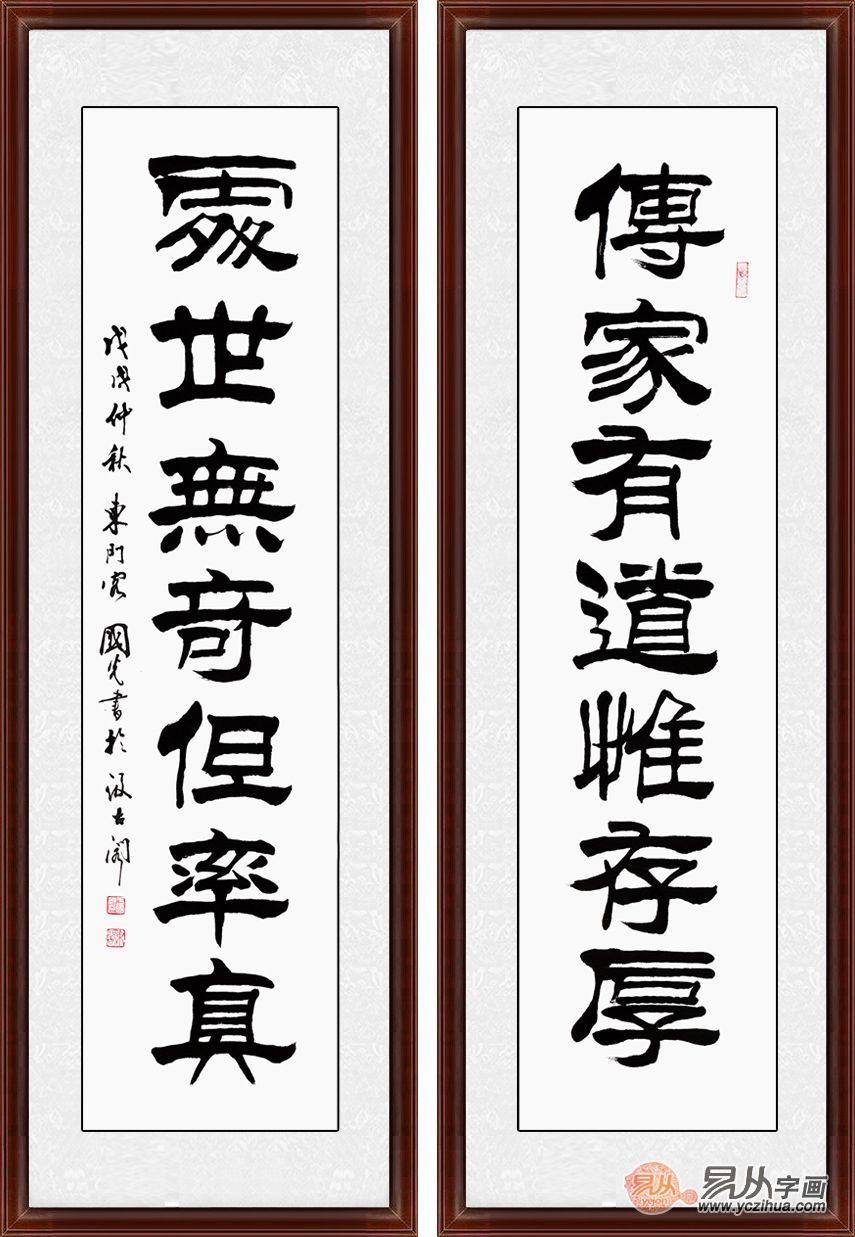 傳家有道惟存厚
處世無奇但率真
戊戌仲秋 東門客 國光書於汲古閣
易从
yigon
易从字画
www.yczihua.com